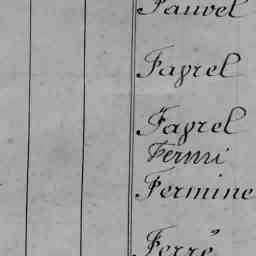 Fauvel
Fayrel
Fayrel
Fermi
Fermine
Ferré